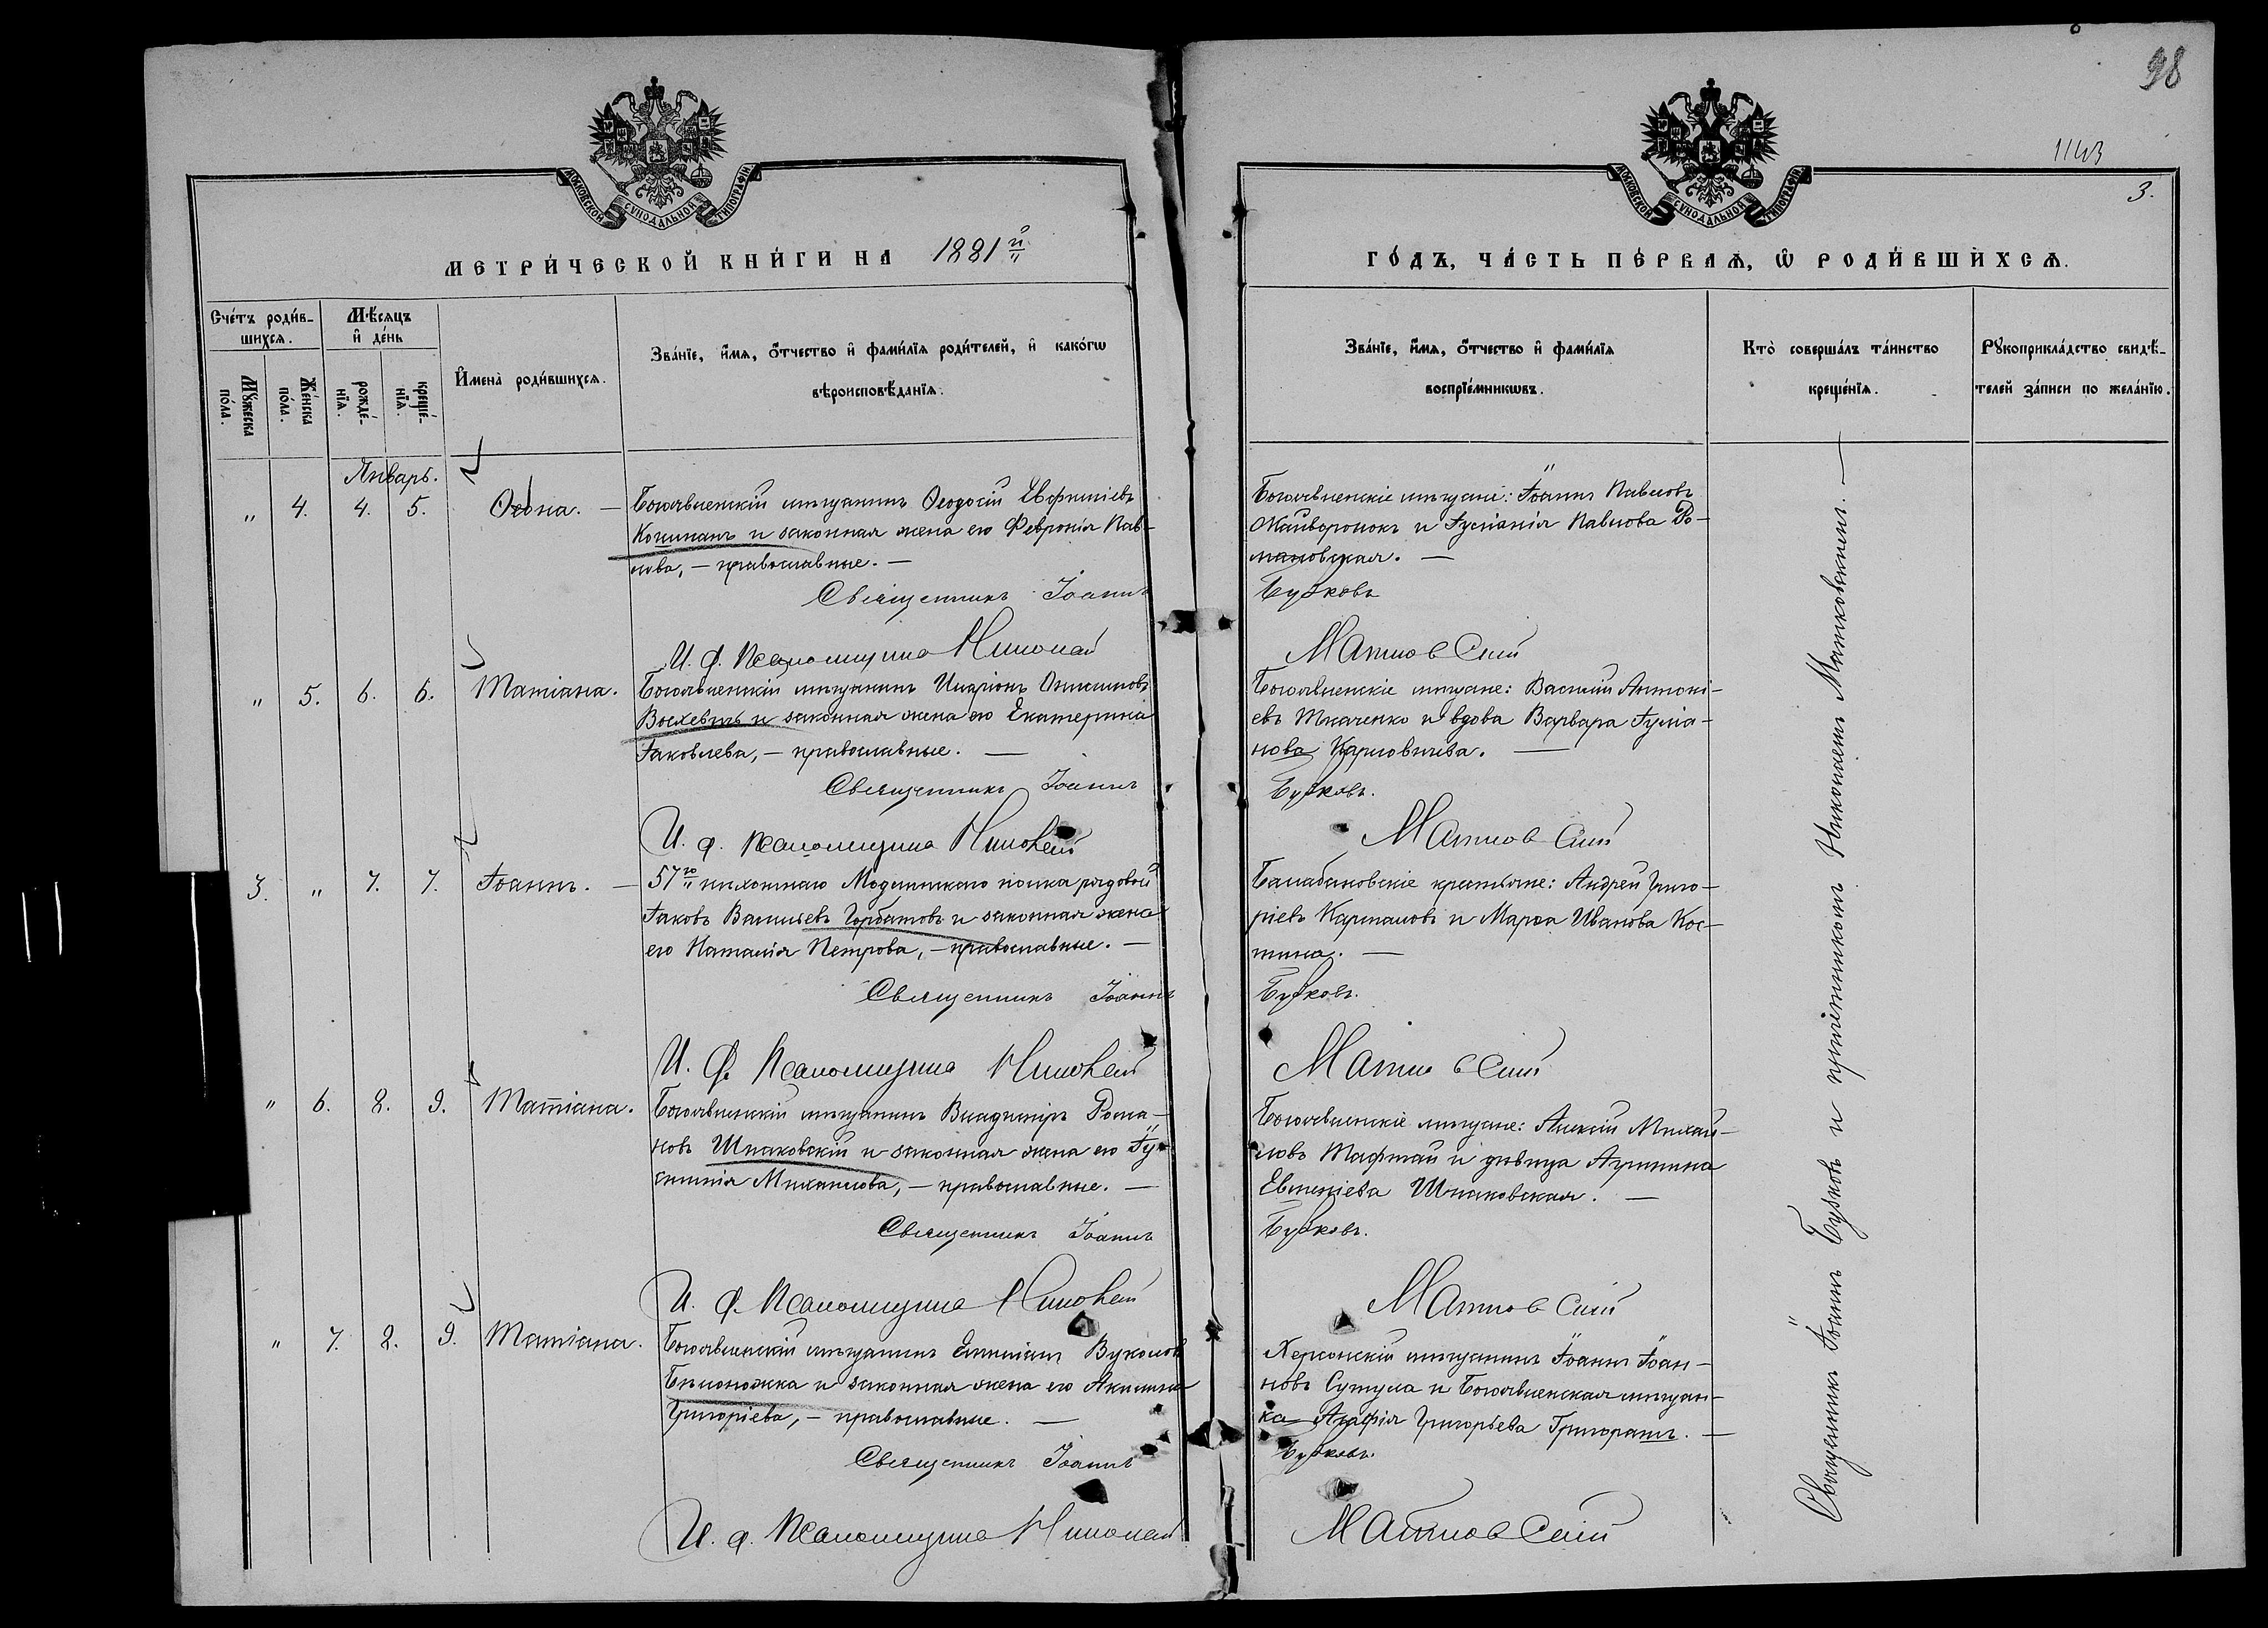 98
1143
3.
МОСКОВСКОЙ СѴНОДАЛЬНОЙ ТИПОГРАФІИ
МОСКОВСКОЙ СѴНОДАЛЬНОЙ ТИПОГРАФІИ
МЕТРИ́ЧЕСКОЙ КНИ́ГИ НА 1881й
ГО́ДЪ, ЧА́СТЬ ПЕ́РВАѦ, Ѡ҆ РОДИ́ВШИХСѦ.
Сче́тъ роди́в-
шихсѧ.
Мѣ́сѧцъ
и҆ де́нь
Мꙋ́жеска
по́ла.
Же́нска
по́ла.
рожде́-
нїѧ.
креще́-
нїѧ.
И҆мена̀ роди́вшихсѧ.
Зва́нїе, и҆́мѧ, ѻ҆́тчество и҆ фами́лїѧ роди́телей, и҆ како́гѡ
вѣроисповѣ́данїѧ.
Зва́нїе, и҆́мѧ, ѻ҆́тчество и҆ фами́лїѧ
воспрїе́мникѡвъ.
Кто̀ соверша́лъ та́инство
креще́нїѧ.
Рꙋкоприкла́дство свидѣ́-
телей за́писи по жела́нїю.
Январь.
" 4. 4. 5. Ѳеона. — Богоявленскій мѣщанинъ Ѳеодосій
и законная жена его Февронія Пав-
лова, — православные. —
Священникъ Іоаннъ
И. ф. Псаломщика Николай
Богоявленскіе мѣщане: Іоаннъ Павловъ
Жайворонокъ и Іуліанія Павлова Ро-
мановская. —
Бужковъ
Матковскій
" 5. 6. 6. Татіана. Богоявленскій мѣщанинъ Иларіонъ Онисимовъ
и законная жена его Екатерина
Іаковлева, — православные. —
Священникъ Іоаннъ
И. ф. Псаломщика Николай
Богоявленскіе мѣщане: Василій Антоні-
евъ Ткаченко и вдова Варвара Іуліа-
нова Карловичева. —
Бужковъ.
Матковскій
3. " 7. 7. Іоаннъ. — 57го пѣхотнаго Модлинскаго полка рядовой
Іаковъ Васильевъ Горбатовъ и законная жена
его Наталія Петрова, — православные. —
Священникъ Іоаннъ
И. ф. Псаломщика Николай
Балабановскіе крестьяне: Андрей Григо-
ріевъ Карташовъ и Марѳа Иванова Кос-
тина. —
Бужковъ.
Матковскій
" 6. 8. 9. Татіана. Богоявленскій мѣщанинъ Владиміръ Рома-
новъ Шпаковскій и законная жена его
Михаилова, — православные. —
Священникъ Іоаннъ
И. ф. Псаломщика Николай
Богоявленскіе мѣщане: Алексій Михаи-
ловъ Тафтай и дѣвица
Евгеніева Шпаковская. —
Бужковъ.
Матковскій
" 7. 8. 9. Татіана. Богоявленскій мѣщанинъ Вуколовъ
Бѣлоножка и законная жена его Акилина
Григоріева, — православные. —
Священникъ Іоаннъ
И. ф. Псаломщика Николай
Херсонскій мѣщанинъ Іоаннъ Іоан-
новъ Сутула и Богоявленская мѣщан-
ка Агафія Григорьева Григорашъ. —
Бужковъ.
Матковскій
Священникъ Іоаннъ Бужковъ и причетникомъ Николаемъ Матковскимъ. —